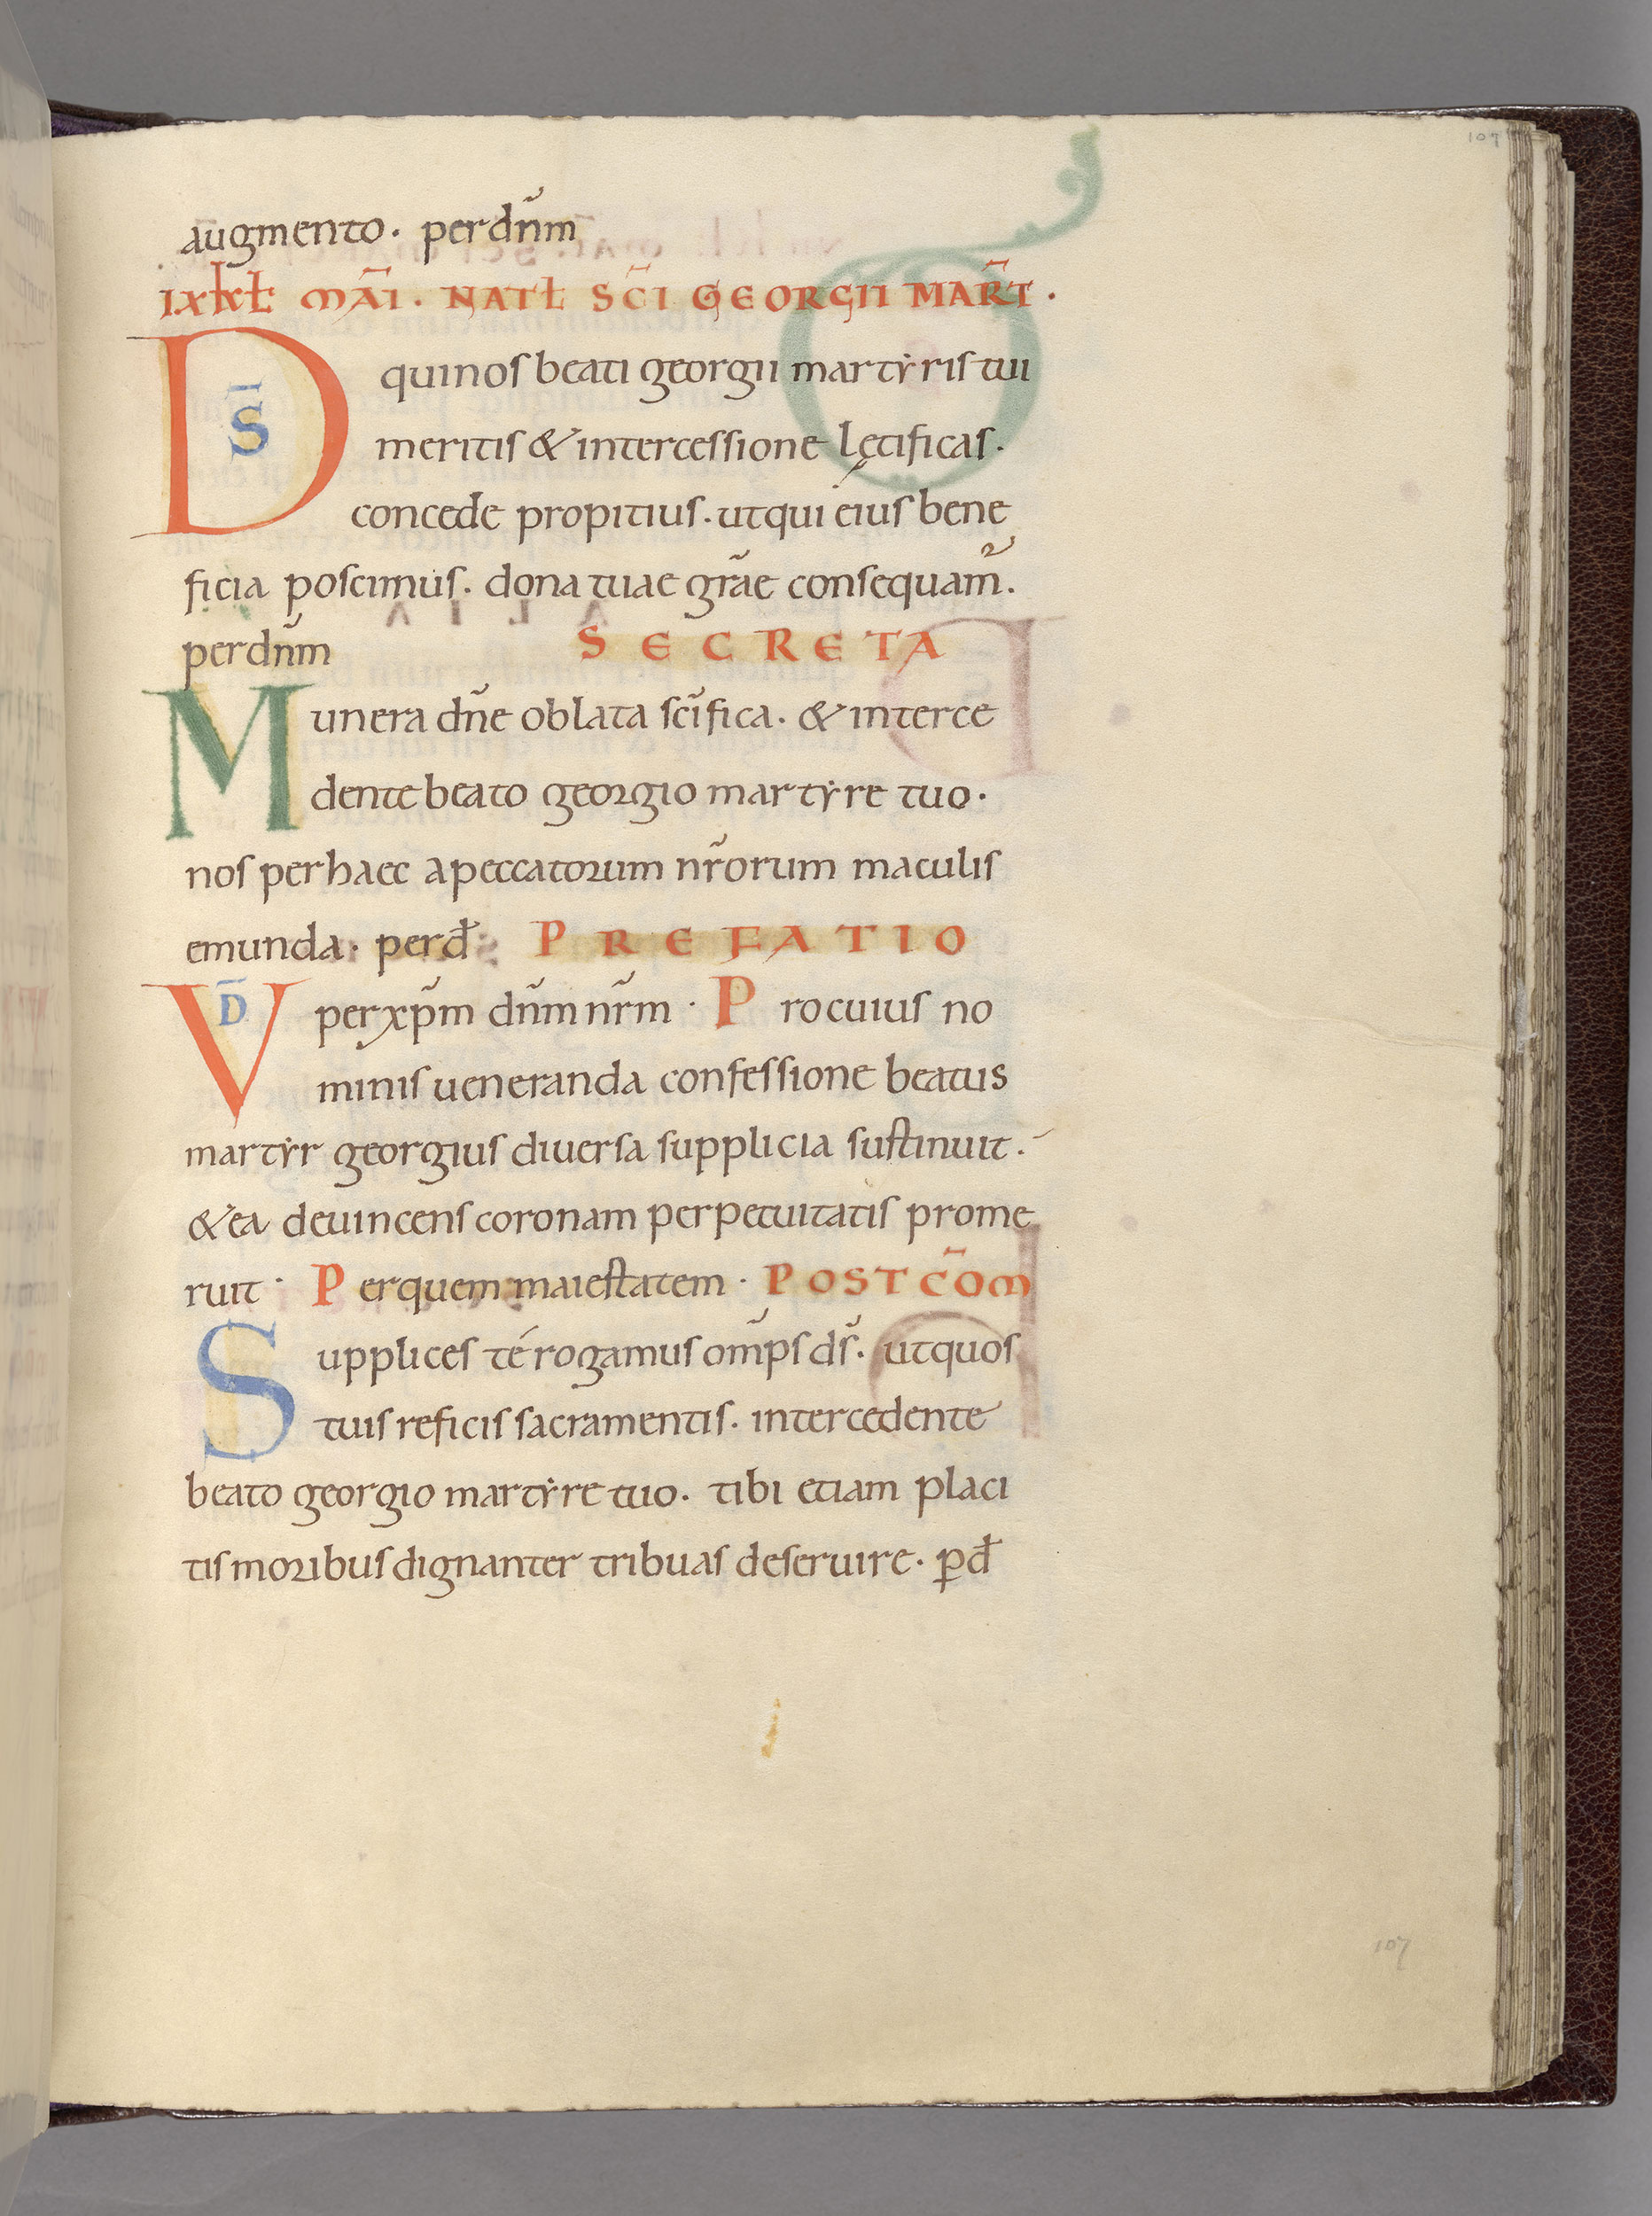 107
augmento. per dñm
IX KŁ MAĪ. NATŁ SC̄I GEORGII MAR̄T.
D̄S qui nos beati georgii martẏris tui
meritis & intercessione lętificas.
concede propitius. ut qui eius bene
ficia poscimus. dona tuae grãe consequam̃.
per dñm SECRETA
Munera dñe oblata sc̃ifica. & interce
dente beato georgio martẏre tuo.
nos per haec a peccatorum nr̃orum maculis
emunda. per đ PREFATIO
VD̄ per xp̃m dñm nr̃m. Pro cuius no
minis ueneranda confessione beatus
martẏr georgius diuersa supplicia sustinuit.
& ea deuincens coronam perpetuitatis prome
ruit. Per quem maiestatem. POST CŌM
Supplices té rogamus om̃ps ds̃. ut quos
tuis reficis sacramentis. intercedente
beato georgio martẏre tuo. tibi etiam placi
tis moribus dignanter tribuas deseruire. ꝑ đ
107